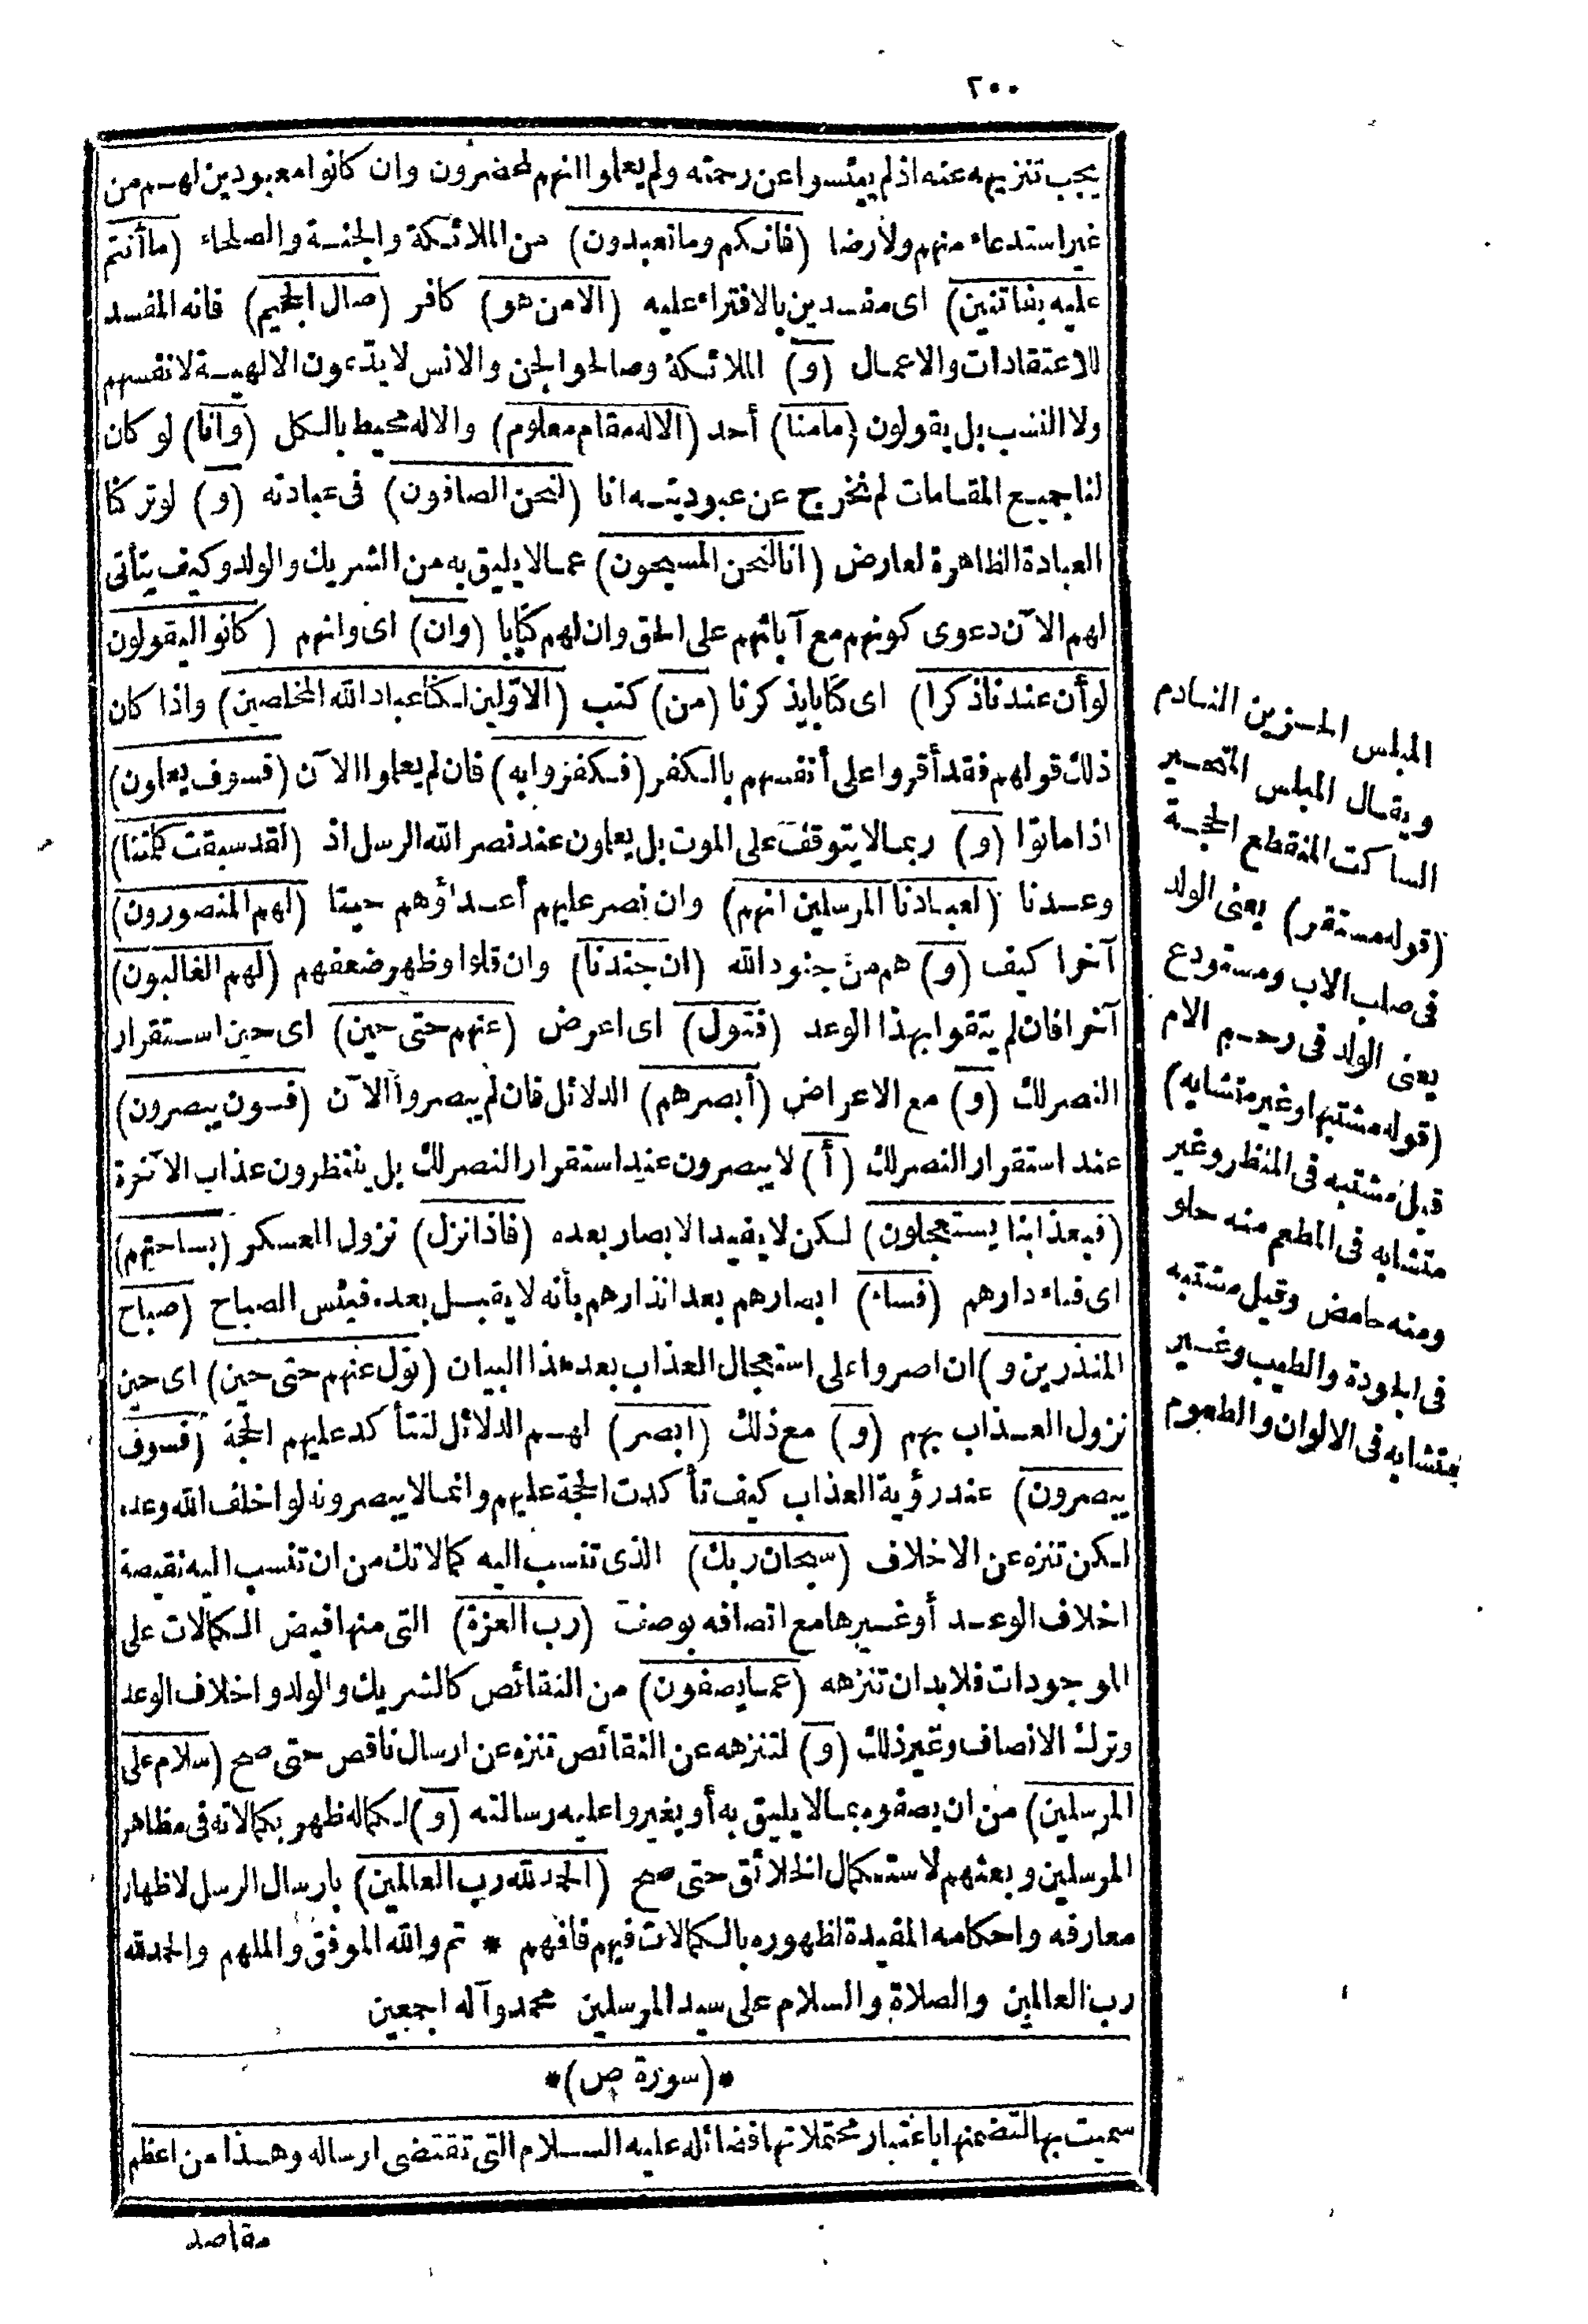 ٢٠٠
يجب تنزيهه عنه اذ لم ييئسوا عن رحمته ولم يعلوا انهم لمحضرون وان كانوا معبودين لهم من
غير استدعاء منهم ولا رضا (فانكم وما تعبدون) من الملائكة والجنة والصلحاء (ما أنتم
عليه بفاتنين) اى مفسدين بالافتراء عليه (الا من هو) كافر (صال الجحيم) فانه المفسد
للاعتقادات والاعمال (و) الملائكة وصالحو الجن والانس لا يدّعون الالهية لانفسهم
ولا النسب بل يقولون (مامنا) أحد (الا له مقام معلوم) والاله محيط بالكل (وانا) لو كان
لنا جميع المقامات لم نخرج عن عبوديته انا (لنحن الصافون) فى عبادته (و) لو تركنا
العبادة الظاهرة لعارض (انا لنحن المسبحون) عما لا يليق به من الشريك والولد وكيف يتأتى
لهم الآن دعوى كونهم مع آبائهم على الحق وان لهم كتابا (وان) اى وانهم (كانوا ليقولون
لو أن عندنا ذكرا) اى كتابا يذكرنا (من) كتب (الاوّلين لكنا عباد الله المخلصين) واذا كان
ذلك قولهم فقد أقروا على أنفسهم بالكفر (فكفروا به) فان لم يعلموا الآن (فسوف يعلون)
اذا ماتوا (و) ربما لا يتوقف على الموت بل يعلون عند نصر الله الرسل اذ (لقد سبقت كلمتنا)
وعدنا (لعبادنا المرسلين انهم) وان نصر عليهم أعداؤهم حينا (لهم المنصورون)
آخرا كيف (و) هم من جنود الله (ان جندنا) وان قلوا وظهر ضعفهم (لهم الغالبون)
آخرا فان لم يثقوا بهذا الوعد (فتول) اى اعرض (عنهم حتى حين) اى حين استقرار
النصر لك (و) مع الاعراض (أبصرهم) الدلائل فان لم يبصروا الآن (فسوف يبصرون)
عند استقرار النصر لك (أ) لا يبصرون عند استقرار النصر لك بل ينتظرون عذاب الآخرة
(فبعذابنا يستعجلون) لكن لا يفيد الابصار بعده (فاذا نزل) نزول العسكر (بساحتهم)
اى فناء دارهم (فساء) ابصارهم بعد انذارهم بأنه لا يقبل بعده فبئس الصباح (صباح
المنذرين و) ان اصروا على استعجال العذاب بعد هذا البيان (تول عنهم حتى حين) اى حين
نزول العذاب بهم (و) مع ذلك (ابصر) لهم الدلائل لتتأكد عليهم الحجة (فسوف
يبصرون) عند رؤية العذاب كيف تأكدت الحجة عليهم وانما لا يبصرونه لو اخلف الله وعده
لكن تنزه عن الاخلاف (سبحان ربك) الذى تنسب اليه كمالاتك من ان تنسب اليه نقيصة
اخلاف الوعد أو غيرها مع اتصافه بوصف (رب العزة) التى منها فيض الكمالات على
الموجودات فلا بد ان تنزهه (عما يصفون) من النقائص كالشريك والولد واخلاف الوعد
وترك الانصاف وغير ذلك (و) لتنزهه عن النقائص تنزه عن ارسال ناقص حتى صح (سلام على
المرسلين) من ان يصفوه بما لا يليق به أو يغيروا عليه رسالته (و) لكماله ظهر بكمالاته فى مظاهر
المرسلين وبعثهم لاستكمال الخلائق حتى صح (الحمد لله رب العالمين) بارسال الرسل لاظهار
معارفه واحكامه المفيدة لظهوره بالكمالات فيهم فافهم * تم والله الموفق والملهم والحمد لله
رب العالمين والصلاة والسلام على سيد المرسلين محمد وآله اجمعين
*(سورة ص)*
سميت بها لتضمنها باعتبار محتملاتها فضائله عليه السلام التى تقتضى ارساله وهذا من اعظم
مقاصد
المبلس الحزين النادم
ويقال المبلس المتحير
الساكت المنقطع الحجة
(قوله مستقر) يعنى الولد
فى صلب الاب ومستودع
يعنى الولد فى رحم الام
(قوله مشتبها وغير متشابه)
قيل مشتبه فى المنظر وغير
متشابه فى المطعم منه حلو
ومنه حامض وقيل مشتبه
فى الجودة والطيب وغير
متشابه فى الالوان والطعوم